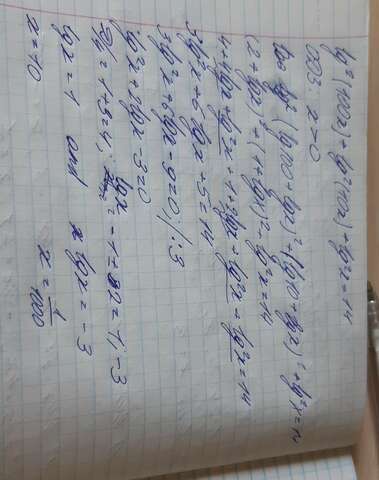 lg²(100x) + lg²(10x) + lg²x = 14
ОДЗ: x > 0
(lg100 + lgx)² + (lg10 + lgx)² + lg²x = 14
(2 + lgx)² + (1 + lgx)² + lg²x = 14
4 + 4lgx + lg²x + 1 + 2lgx + lg²x + lg²x = 14
3lg²x + 6lgx + 5 = 14
3lg²x + 6lgx - 9 = 0 /:3
lg²x + 2lgx - 3 = 0
D/4 = 1 + 3 = 4, lgx = -1 ± 2 = 1, -3
lgx = 1 lgx = -3
x = 10 x = 1/1000